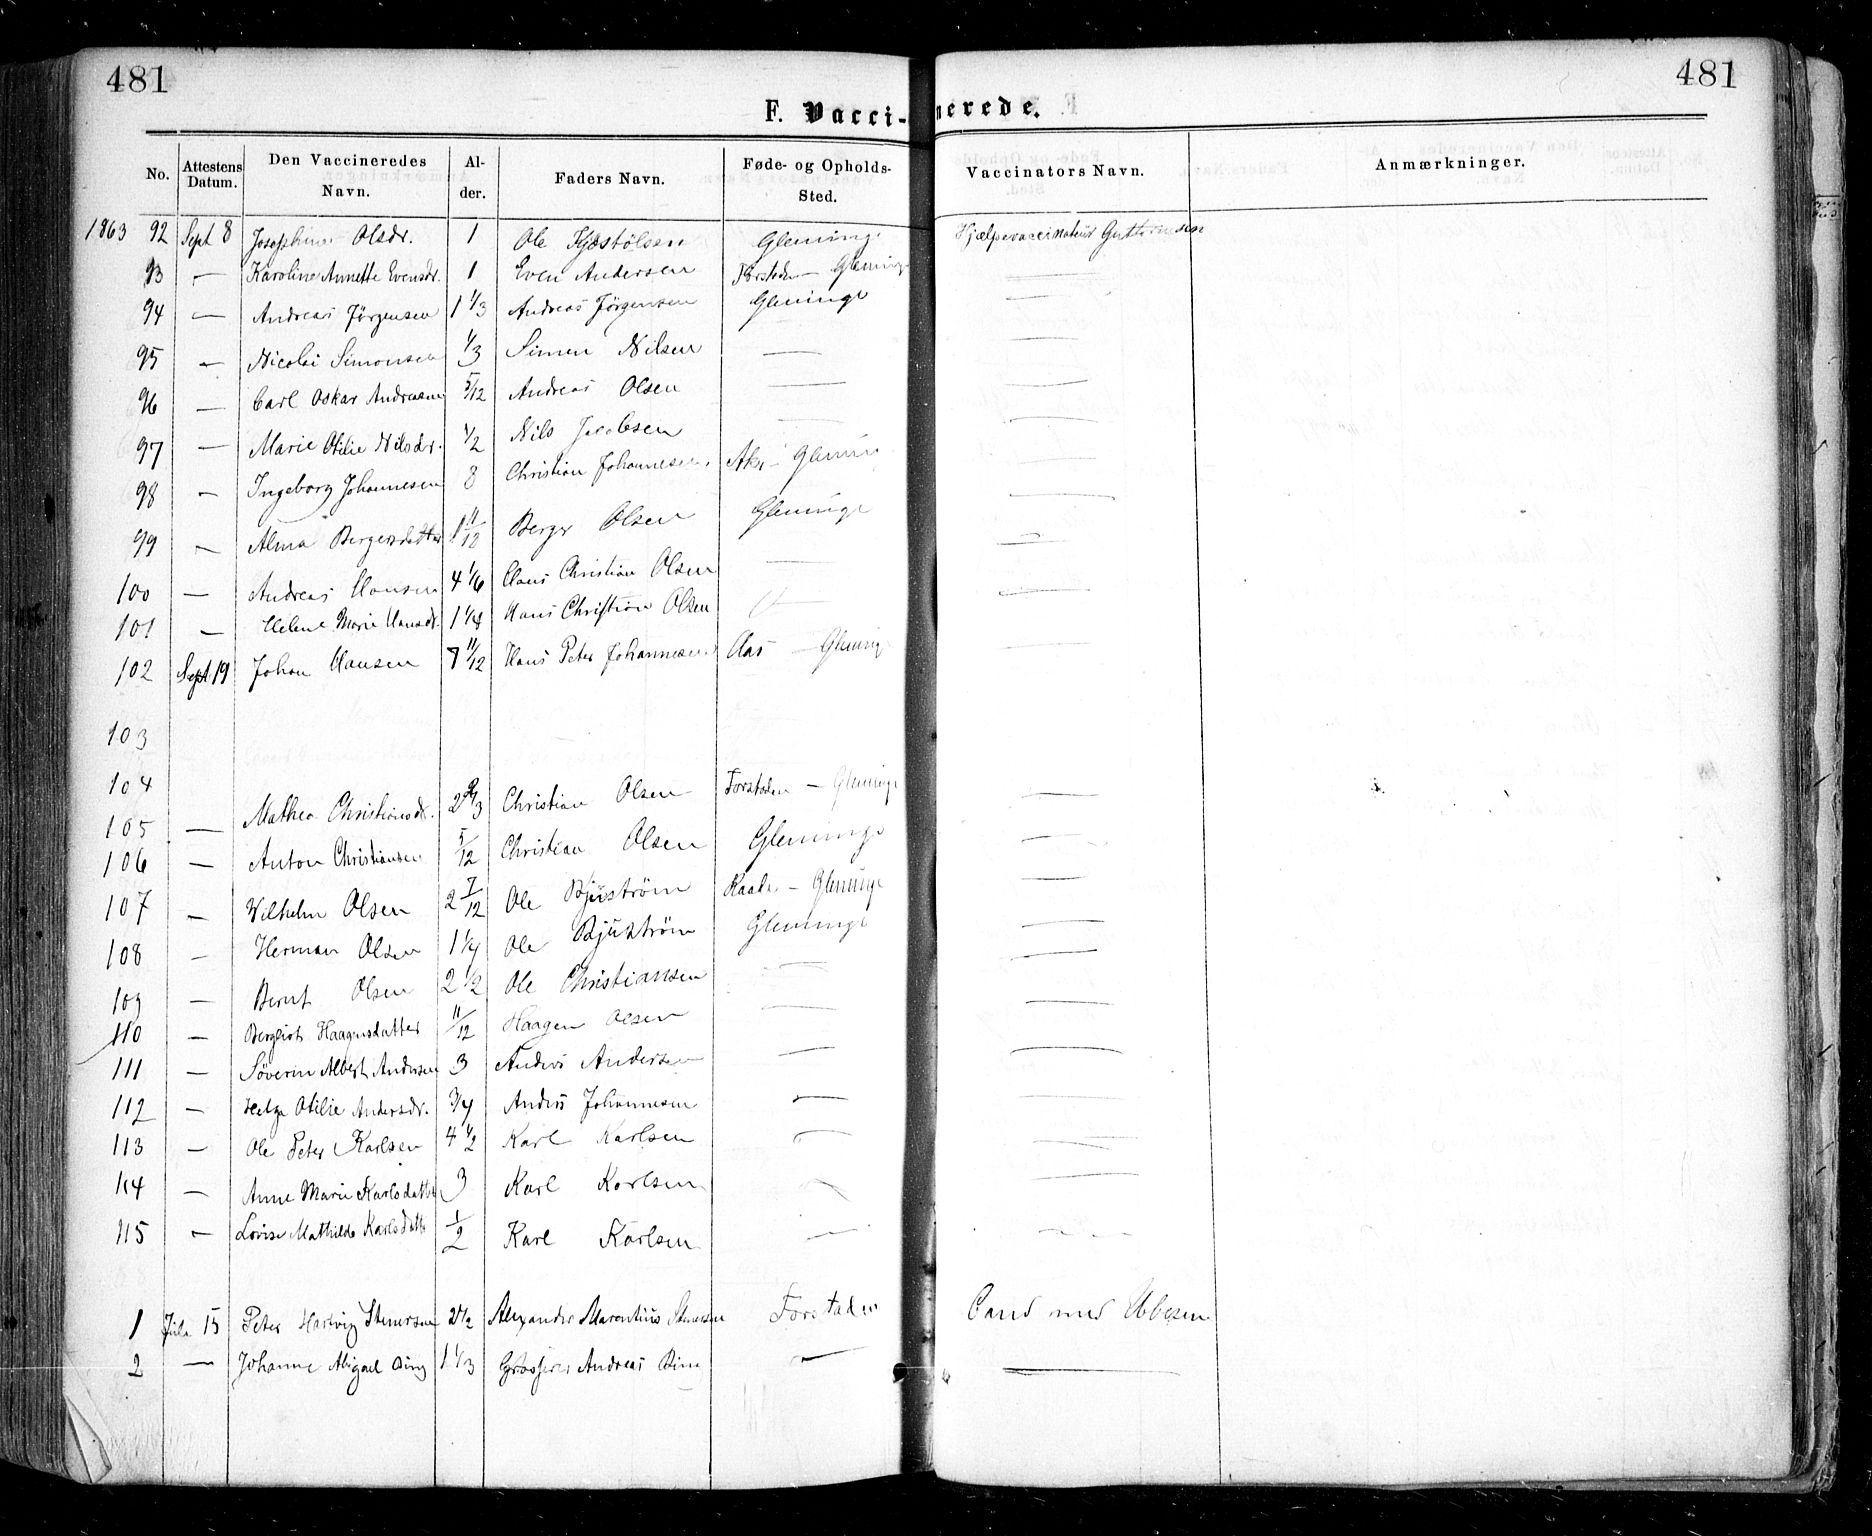 481 481
F. Vaccinerede.
No. Attestens Datum. Den Vaccineredes Navn. Alder. Faders Navn. Føde- og Opholds-Sted. Vaccinators Navn. Anmærkninger.
1863 92 Sept 8 Josephine Olsdr. 1 Ole Glemminge Hjælpevaccinateur Guttormsen
93 — Karoline Annette Evensdr. 1 Even Andersen Forstaden — Glemminge —
94 — Andreas Jörgensen 1 1/3 Andreas Jörgensen Glemminge —
95 — Nicolai Simonsen 1/3 Simen Nilsen — —
96 — Carl Oskar Andreasen 5/12 Andreas Olsen — —
97 — Marie Otilie Nilsdr. 1/2 Nils Jacobsen — —
98 — Ingeborg Johannesen 8 Christian Johannesen. — Glemminge —
99 — Alma Bergersdatter 1 11/12 Berger Olsen Glemminge —
100 — Andreas Hansen 4 1/6 Hans Christian Olsen — —
101 — Helene Marie Hansdr. 1 1/4 Hans Christian Olsen — —
102 Sept 19 Johan Hansen 7 11/12 Hans Peter Johannesen Aas — Glemminge —
103
104
105 — Mathea Christiansdr. 2 2/3 Christian Olsen Forstaden — Glemminge —
106 — Anton Christiansen 5/12 Christian Olsen Glemminge —
107 — Vilhelm Olsen 2 7/12 Ole Bjuström Raade — Glemminge —
108 — Herman Olsen 1 1/4 Ole Bjuström Glemminge —
109 — Bernt Olsen 2 1/2 Ole Christiansen — —
110 — Bergliot Haagensdatter 11/12 Haagen Olsen — —
111 — Söverin Albert Andersen 3 Anders Andersen — —
112 — Helga Otilie Andersdr. 3/4 Anders Johannesen — —
113 — Ole Peter Karlsen 4 1/2 Karl Karlsen — —
114 — Anne Marie Karlsdatter 3 Karl Karlsen — —
115 — Lovise Mathilde Karlsdatter 1/2 Karl Karlsen — —
1 Peter Hartvig Stenersen 2 1/2 Alexander Stenersen Forstaden Cand med Ebbesen
2 — Johanne Abigael 1 1/3 Grosserer Andreas — —